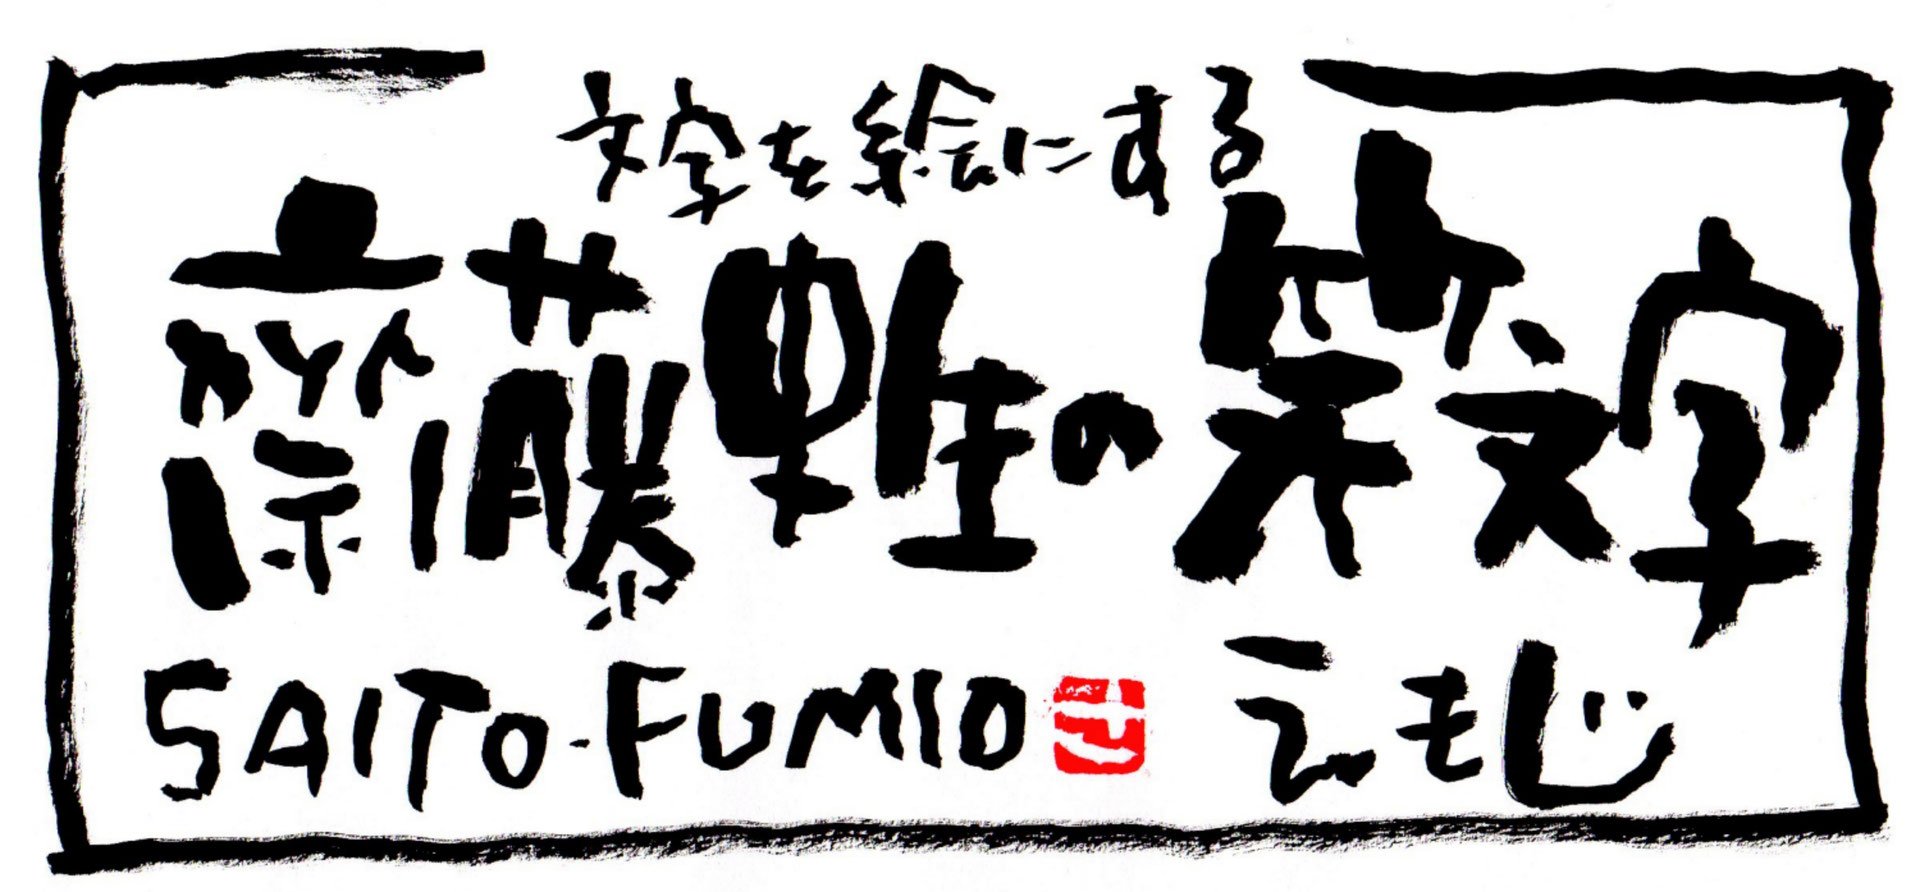 文字を絵にする
齋藤史生の笑文字
SAITO-FUMIO さ えもじ